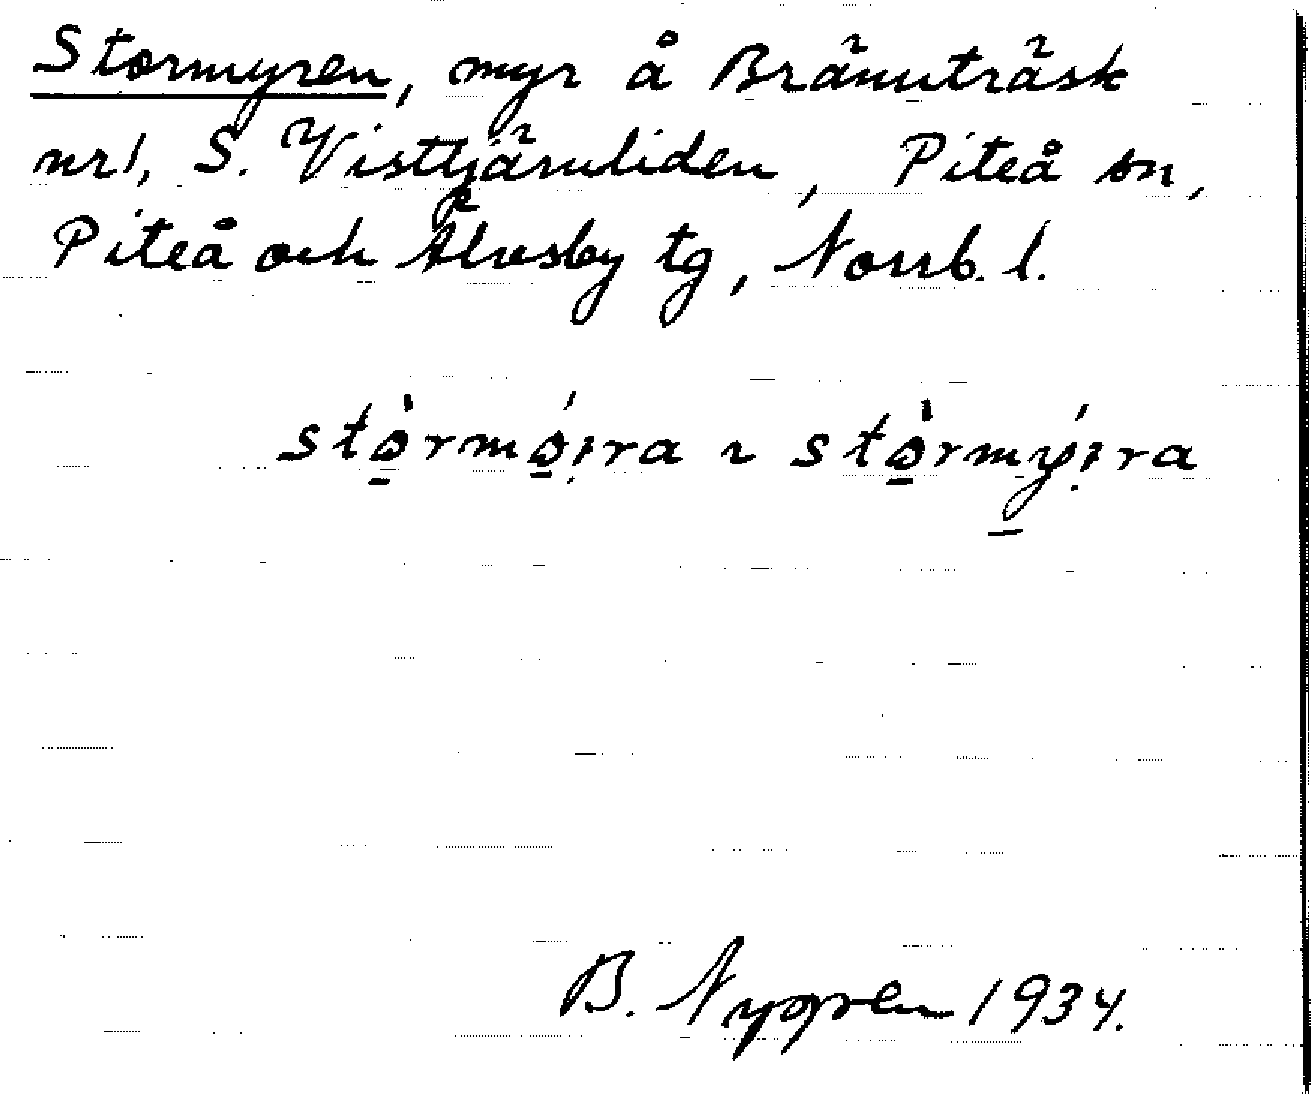 Stormyren, myr å Brännträsk
nr 1, S. Visttjärnliden, Piteå sn,
Piteå och Älvsby tg, Norrb. l.
stò̠rmó̠ịra ~ stò̠rmý̠ịra
B. Nygren 1934.